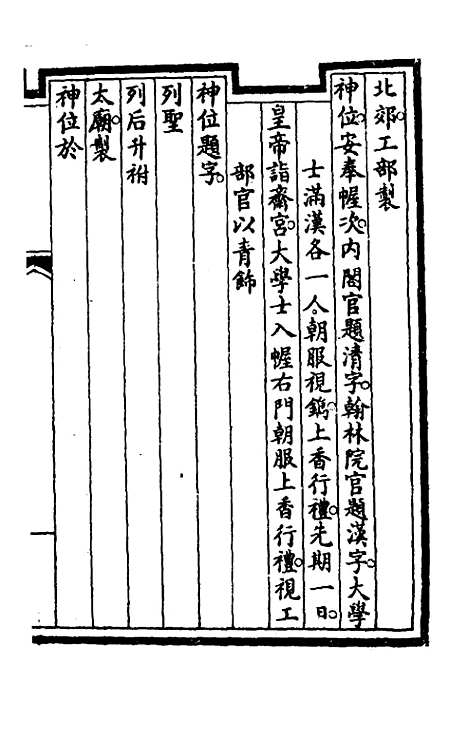 北郊。工部製
神位。安奉幄次。內閣官題清字。翰林院官題漢字。大學
士滿漢各一人。朝服視鐫。上香行禮。先期一日。
皇帝詣齋宮。大學士入幄右門朝服上香行禮。視工
部官以青飾
神位題字。
列聖
列后升祔
太廟。製
神位於